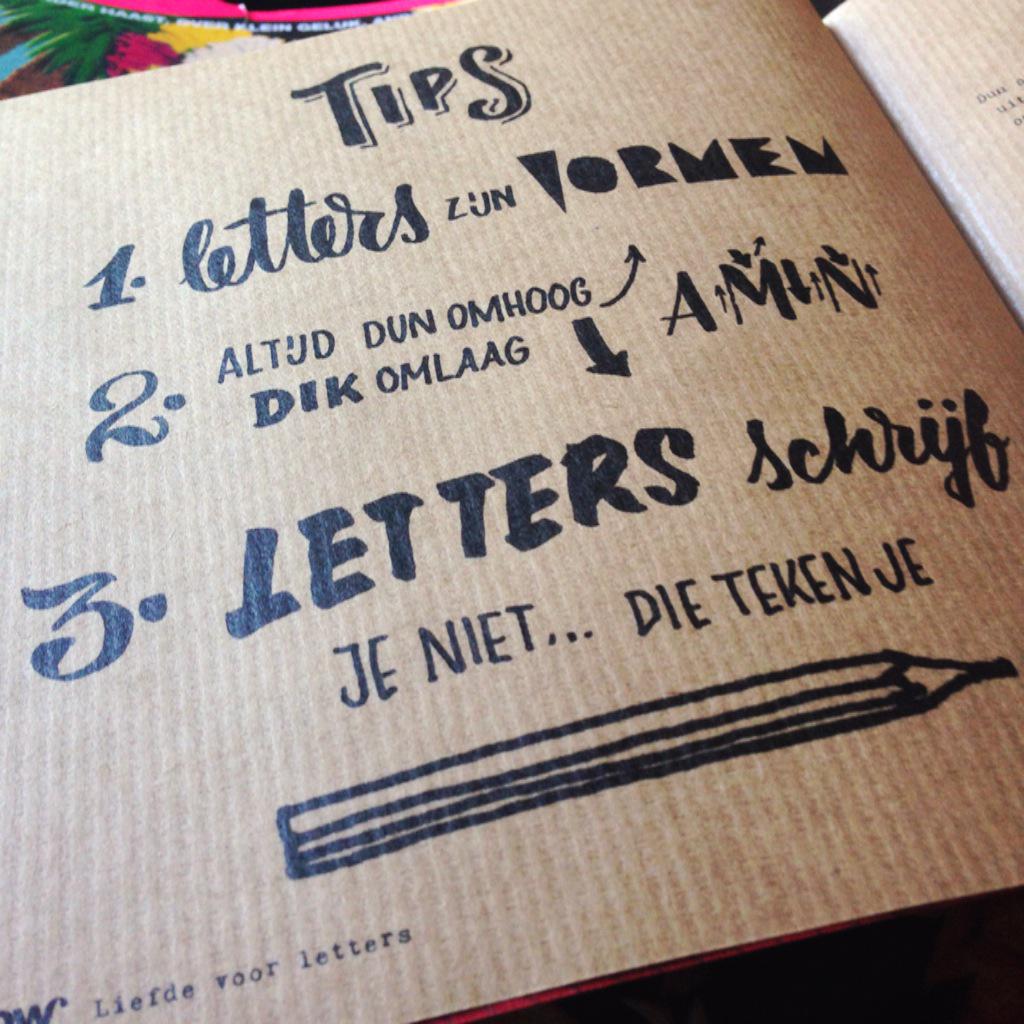 KLEIN GELUK,
TIPS
1. letters ZIJN VORMEN
2. ALTIJD DUN OMHOOG
DIK OMLAAG
AMIN
3. LETTERS schrijf
JE NIET... DIE TEKEN JE
Liefde voor letters
Dun